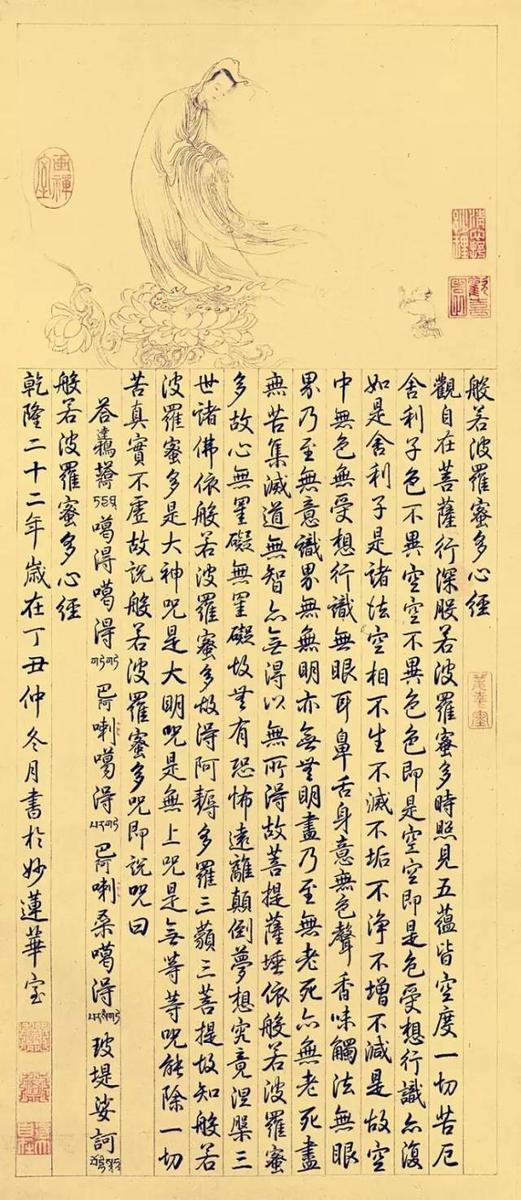 畫禪室
般若波羅蜜多心經
觀自在菩薩行深般若波羅蜜多時照見五蘊皆空度一切苦厄
舍利子色不異空空不異色色即是空空即是色受想行識亦復
如是舍利子是諸法空相不生不滅不垢不淨不增不減是故空
中無色無受想行識無眼耳鼻舌身意無色聲香味觸法無眼
界乃至無意識界無無明亦無無明盡乃至無老死亦無老死盡
無苦集滅道無智亦無得以無所得故菩提薩埵依般若波羅蜜
多故心無罣礙無罣礙故無有恐怖遠離顛倒夢想究竟涅槃三
世諸佛依般若波羅蜜多故得阿耨多羅三藐三菩提故知般若
波羅蜜多是大神咒是大明咒是無上咒是無等等咒能除一切
苦真實不虛故說般若波羅蜜多咒即說咒曰
噶得噶得巴阿喇噶得巴阿喇桑噶得玻堤娑訶
般若波羅蜜多心經
乾隆二十二年歲在丁丑仲冬月書於妙蓮華室